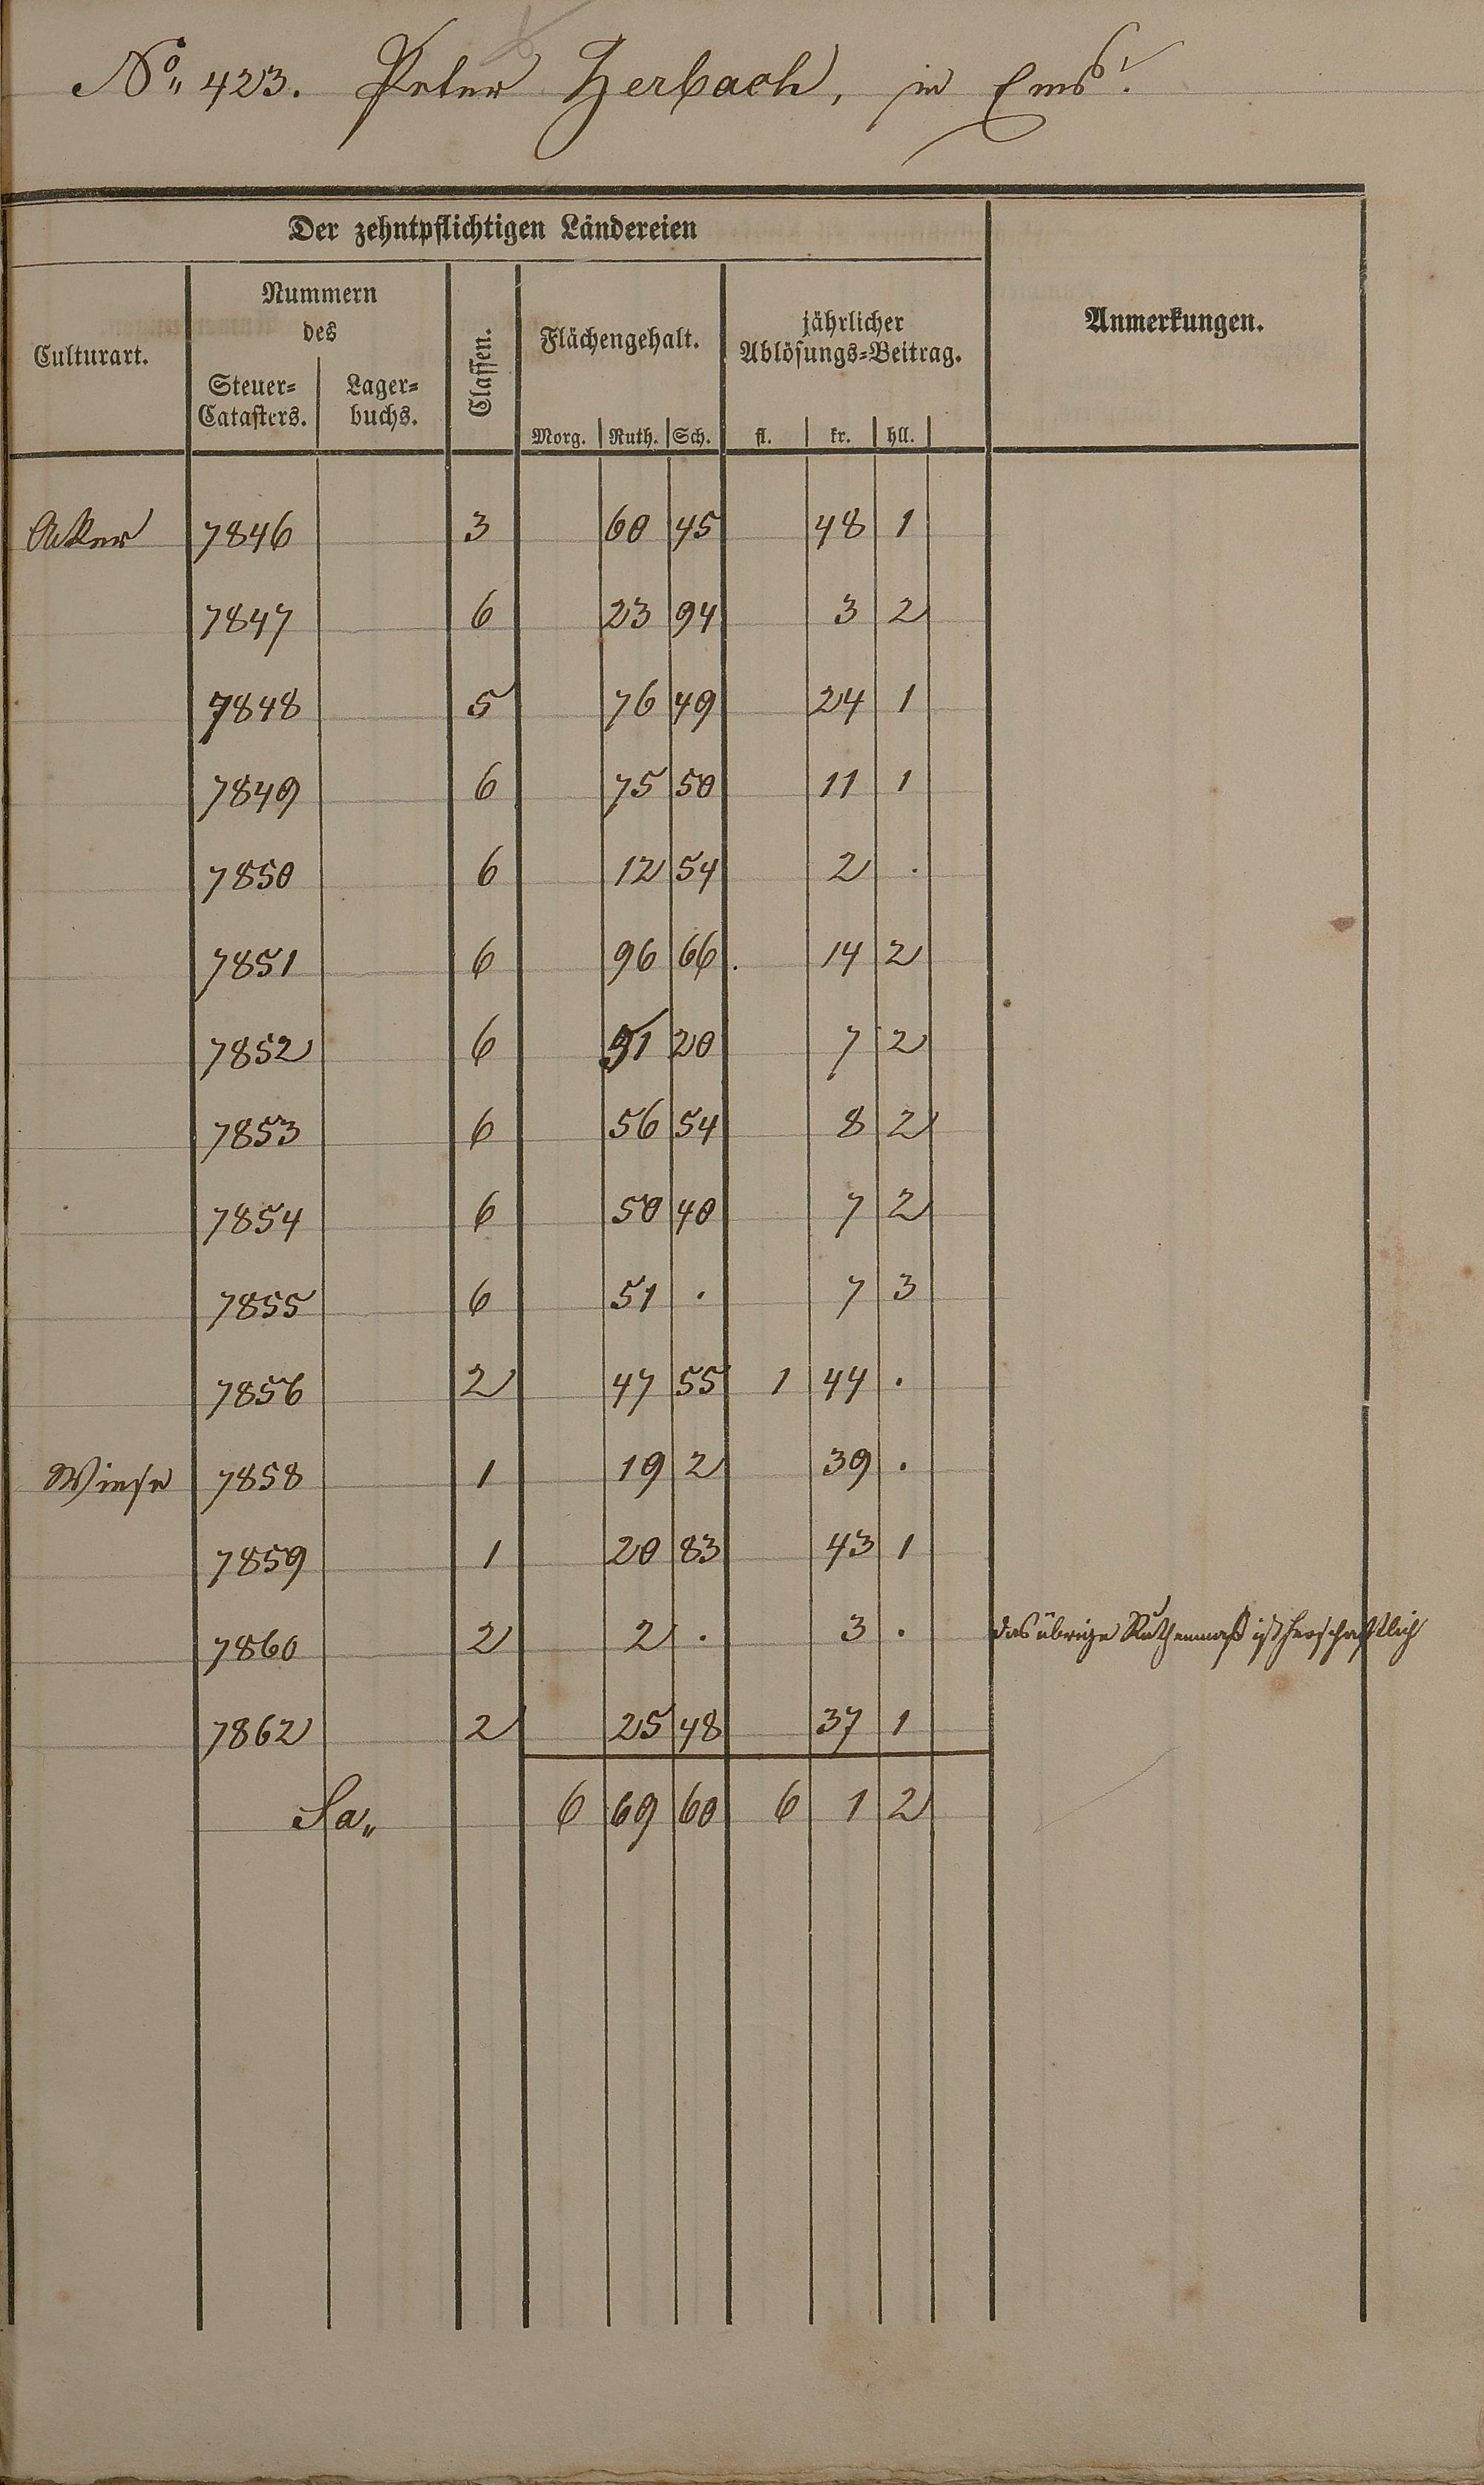 No. 423. Peter Zerbach, in Ems.
Der zehntpflichtigen Ländereien
Culturart.
Nummern
des
Steuer-
Catasters.
Lager-
buchs.
Classen.
Flächengehalt.
Morg. Ruth. Sch.
jährlicher
Ablösungs-Beitrag.
fl. kr. hll.
Anmerkungen.
Acker 7846 3 60 45 48 1
7847 6 23 94 3 2
7848 5 76 49 24 1
7849 6 75 50 11 1
7850 6 12 54 2 .
7851 6 96 66 . 14 2
7852 6 51 20 7 2
7853 6 56 54 8 2
7854 6 50 40 7 2
7855 6 51 . 7 3
7856 2 47 55 1 44 .
Wiese 7858 1 19 2 39 .
7859 1 20 83 43 1
7860 2 2 . 3 . das übrige Ruthenmaß ist herschaftlich
7862 2 25 48 37 1
Sa„ 6 69 60 6 1 2